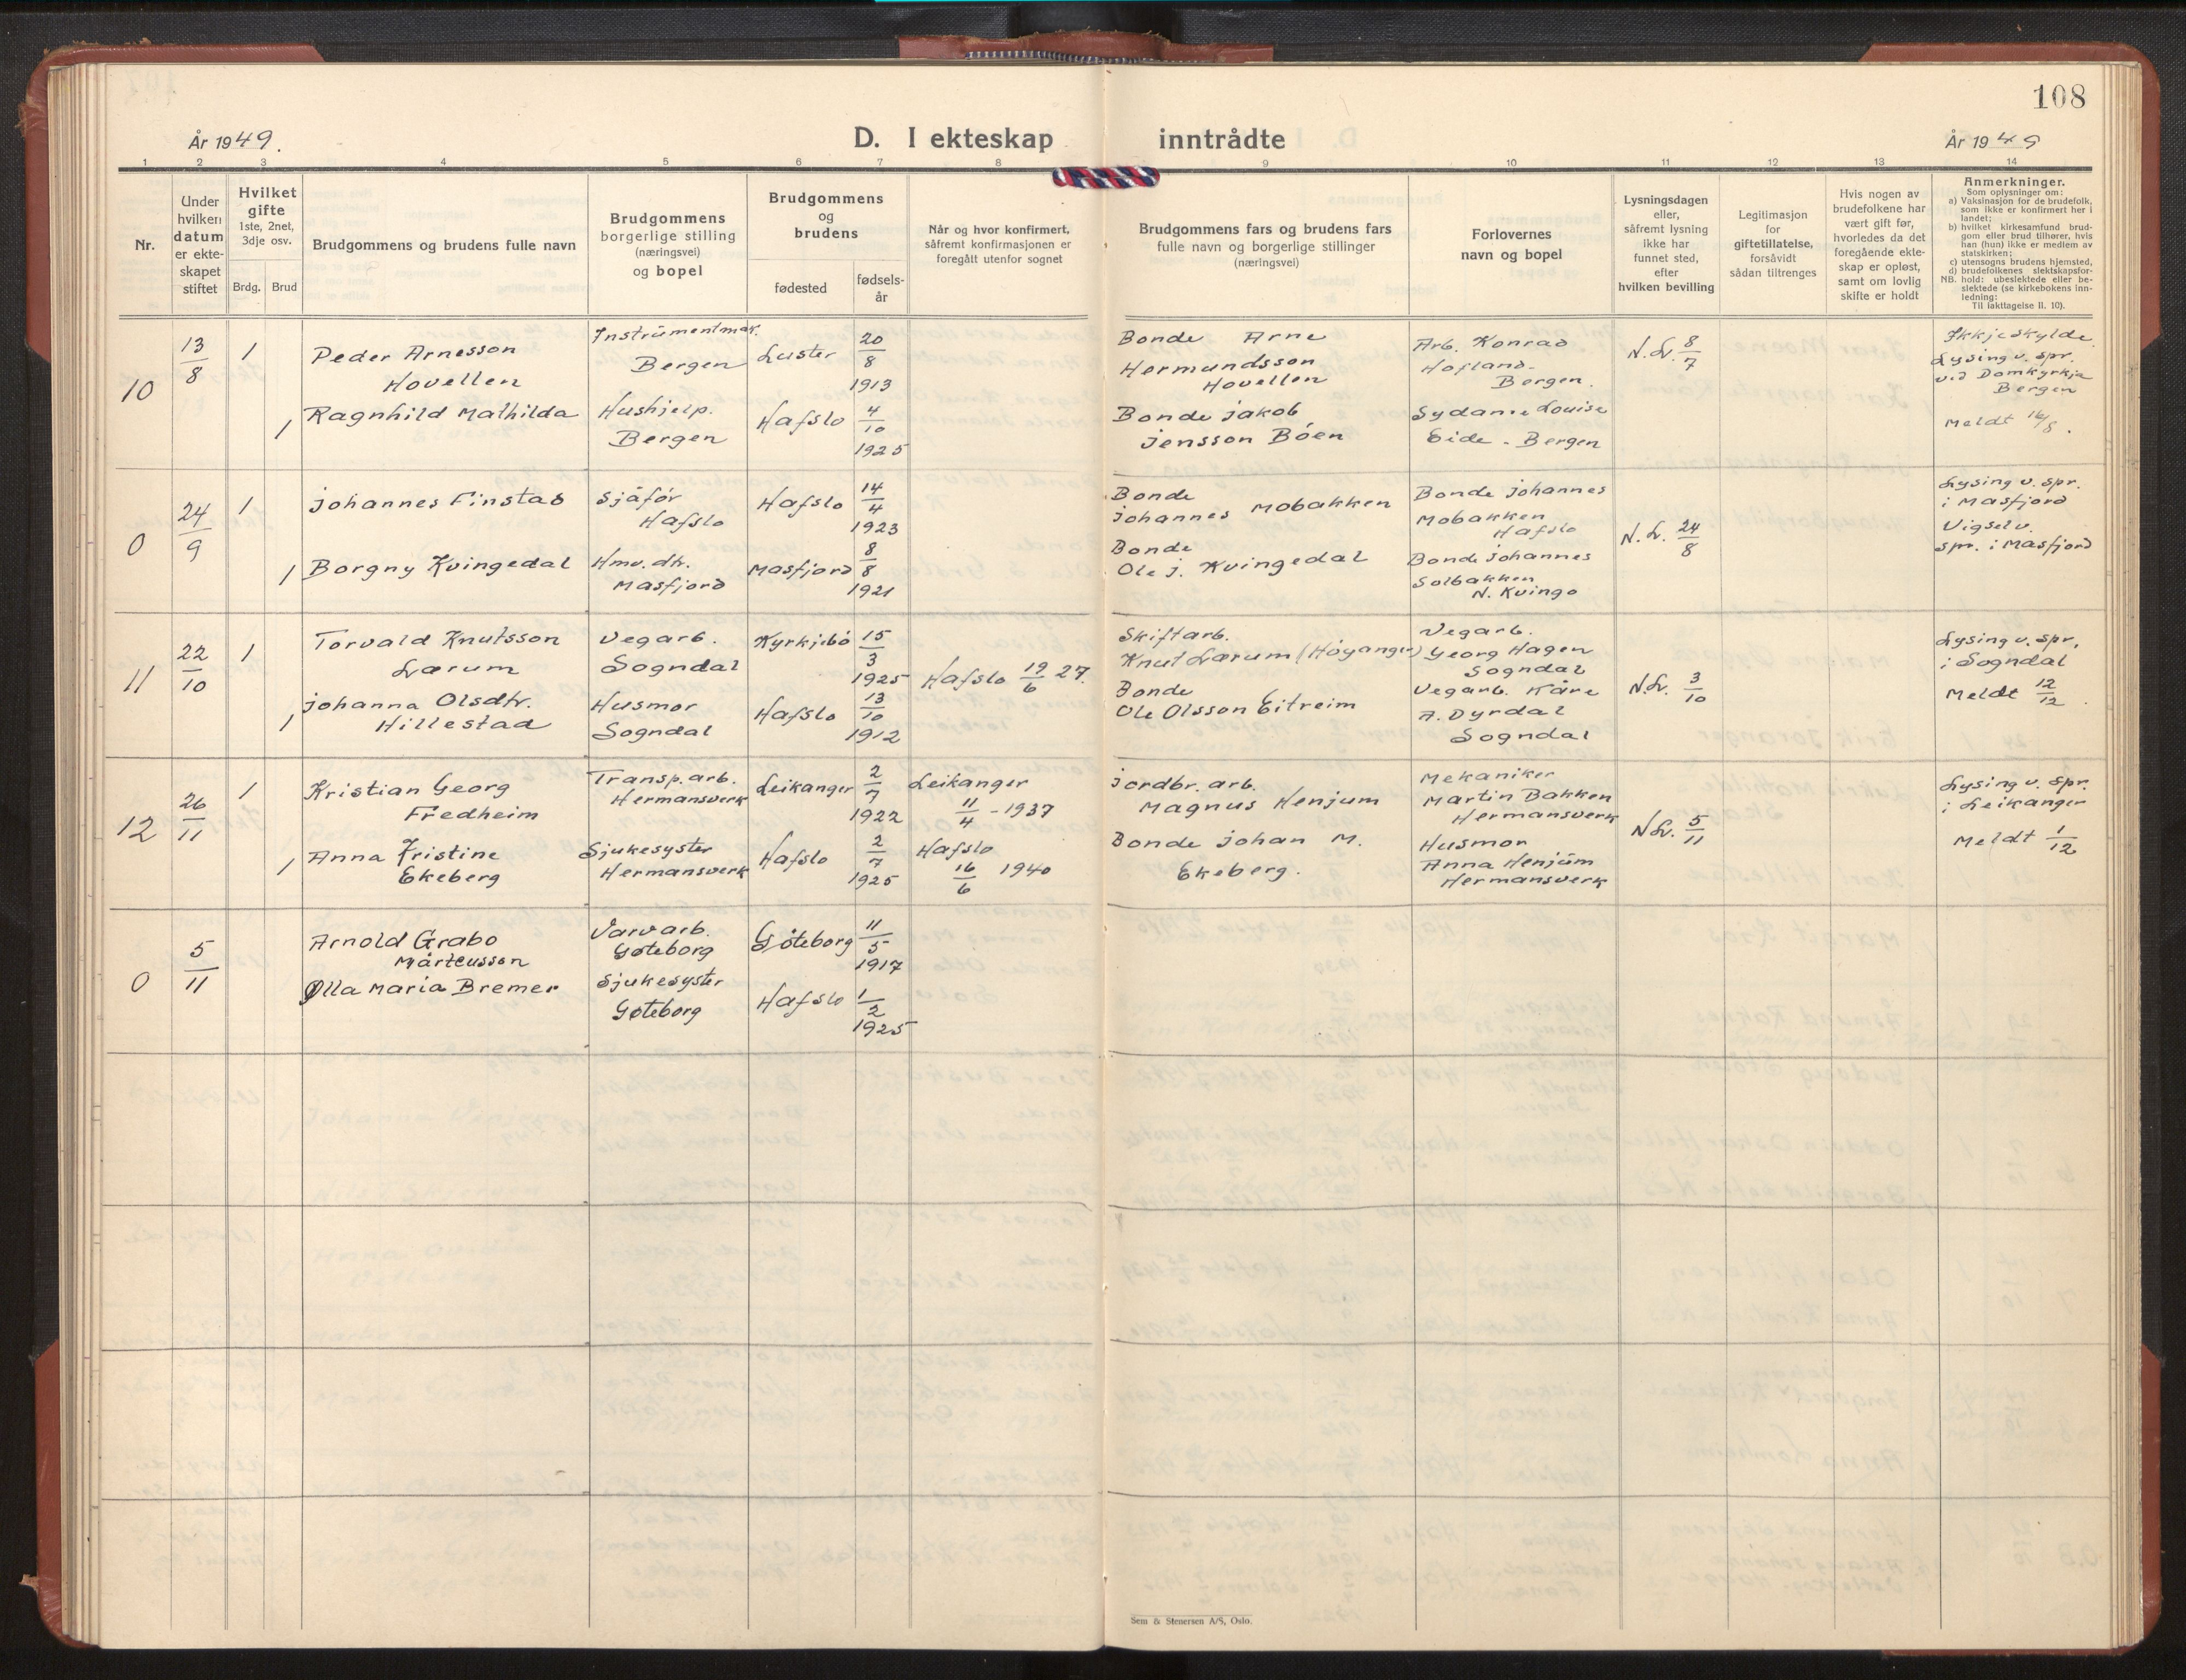 108
År 1949.
D. I ekteskap inntrådte
År 1949
1 2 3 4 5 6 7 8 9 10 11 12 13 14
Nr.
Under
hvilken
datum
er ekte-
skapet
stiftet
Hvilket
gifte
1ste, 2net,
3dje osv.
Brdg. Brud
Brudgommens og brudens fulle navn
Brudgommens
borgerlige stilling
(næringsvei)
og bopel
Brudgommens
og
brudens
fødested
fødsels-
år
Når og hvor konfirmert,
såfremt konfirmasjonen er
foregått utenfor sognet
Brudgommens fars og brudens fars
fulle navn og borgerlige stillinger
(næringsvei)
Forlovernes
navn og bopel
Lysningsdagen
eller,
såfremt lysning
ikke har
funnet sted,
efter
hvilken bevilling
Legitimasjon
for
giftetillatelse,
forsåvidt
sådan tiltrenges
Hvis nogen av
brudefolkene har
vært gift før,
hvorledes da det
foregående ekte-
skap er opløst,
samt om lovlig
skifte er holdt
Anmerkninger.
Som oplysninger om:
a) Vaksinasjon for de brudefolk,
som ikke er konfirmert her i
landet;
b) hvilket kirkesamfund brud-
gom eller brud tilhører, hvis
han (hun) ikke er medlem av
statskirken;
c) utensogns brudens hjemsted,
d) brudefolkenes slektskapsfor-
NB. hold: ubeslektede eller be-
slektede (se kirkebokens inn-
ledning:
Til iakttagelse II. 10).
10
13/8
1
Peder Arnesson
Hovellen
1
Ragnhild Mathilda
Instrumentmak.
Bergen
Hushjelp.
Bergen
Luster
20/8
1913
Hafslo
4/10
1925
Bonde Arne
Hermundsson
Hovellen
Bonde Jakob
Jensson Bøen
Arb. Konrad
Hofland.
Bergen.
Sydanie Louise
Eide - Bergen
N. Lv. 8/7
Ikkje skylde
Lysing v. spr.
ved Domkyrkja
Bergen
Meldt 16/8.
0
24/9
1
Johannes Finstad
1
Borgny Kvingedal
Sjåfør
Hafslo
Hmv. dtr.
Masfjord
Hafslo
14/4
1923
Masfjord
8/8
1921
Bonde
Johannes Mobakken
Bonde
Ole J. Kvingedal
Bonde Johannes
Mobakken
Hafslo
Bonde Johannes
Solbakken
N. Kvingo
N. Lv. 24/8
Lysing v. spr.
i Masfjord
Vigsel v.
spr. i Masfjord
11
22/10
1
Torvald Knutsson
Lærum
1
Johanna Olsdtr.
Hillestad
Vegarb.
Sogndal
Husmor
Sogndal
Kyrkjebø
15/3
1925
Hafslo
13/10
1912
Hafslo 19/6 27.
Skiftarb.
Knut Lærum (Høyanger)
Bonde
Ole Olsson Eitreim
Vegarb.
Georg Hagen
Sogndal
Vegarb. Kåre
A. Dyrdal
Sogndal
N. Lv. 3/10
Lysing v. spr.
i Sogndal
Meldt 12/12.
12
26/11
1
Kristian Georg
Fredheim
1
Anna Kristine
Ekeberg
Transp. arb.
Hermansverk
Sjukesyster
Hermansverk
Leikanger
2/7
1922
Hafslo
2/7
1925
Leikanger
11/4 - 1937
Hafslo
16/6 1940
Jordbr. arb.
Magnus Henjum
Bonde Johan M.
Ekeberg.
Mekaniker
Martin Bakken
Hermansverk
Husmor
Anna Henjum
Hermansverk
N Lv. 5/11
Lysing v. spr.
i Leikanger
Meldt 1/12
0
5/11
Arnold Grabo
Mårtensson
Olla Maria Bremer
Varvarb.
Gøteborg
Sjukesyster
Gøteborg
Gøteborg
11/5
1917
Hafslo
1/2
1925
Sem & Stenersen A/S, Oslo.